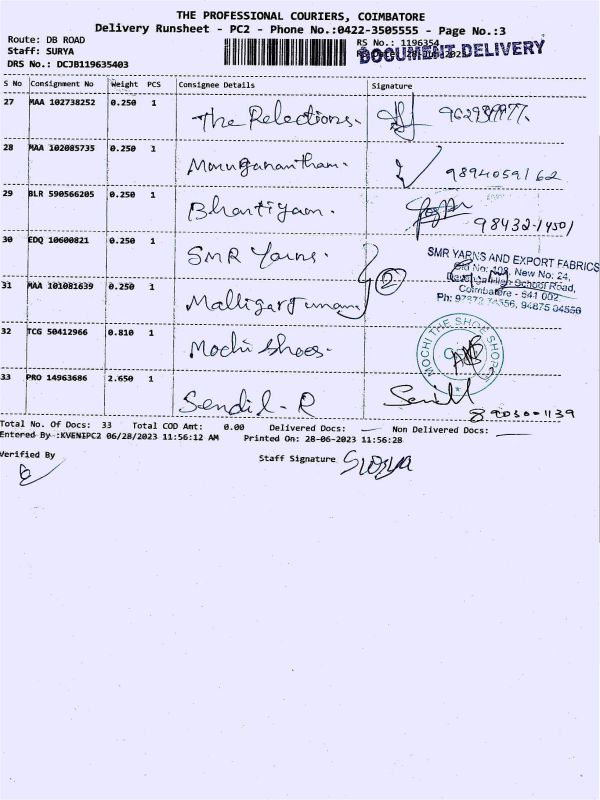 THE PROFESSIONAL COURIERS, COIMBATORE
Delivery Runsheet - PC2 - Phone No.:0422-3505555 - Page No.:3
Route: DB ROAD
RS No.: 1196354
Staff: SURYA
DOCUMENT DELIVERY
DRS No.: DCJB119635403
S No Consignment No Weight PCS Consignee Details Signature
27 MAA 102738252 0.250 1 The Relections.
28 MAA 102085735 0.250 1 Monuganantham. 9894059162
29 BLR 590566205 0.250 1 98432-14501
30 EDQ 10600821 0.250 1 SMR Yarns.
SMR YARNS AND EXPORT FABRICS
Old No: 108, New No: 24,
School Road,
Coimbatore - 641 002
Ph: 97872 74556, 94875 04556
2
31 MAA 101081639 0.250 1
32 TCG 50412966 0.810 1 Mochi Shoes.
MOCHI THE SHOW SHOPPE
33 PRO 14963686 2.650 1 Sendil - R
89030-01139
Total No. Of Docs: 33 Total COD Amt: 0.00 Delivered Docs: Non Delivered Docs:
Entered By :KVENIPC2 06/28/2023 11:56:12 AM Printed On: 28-06-2023 11:56:28
Verified By
Staff Signature Surya